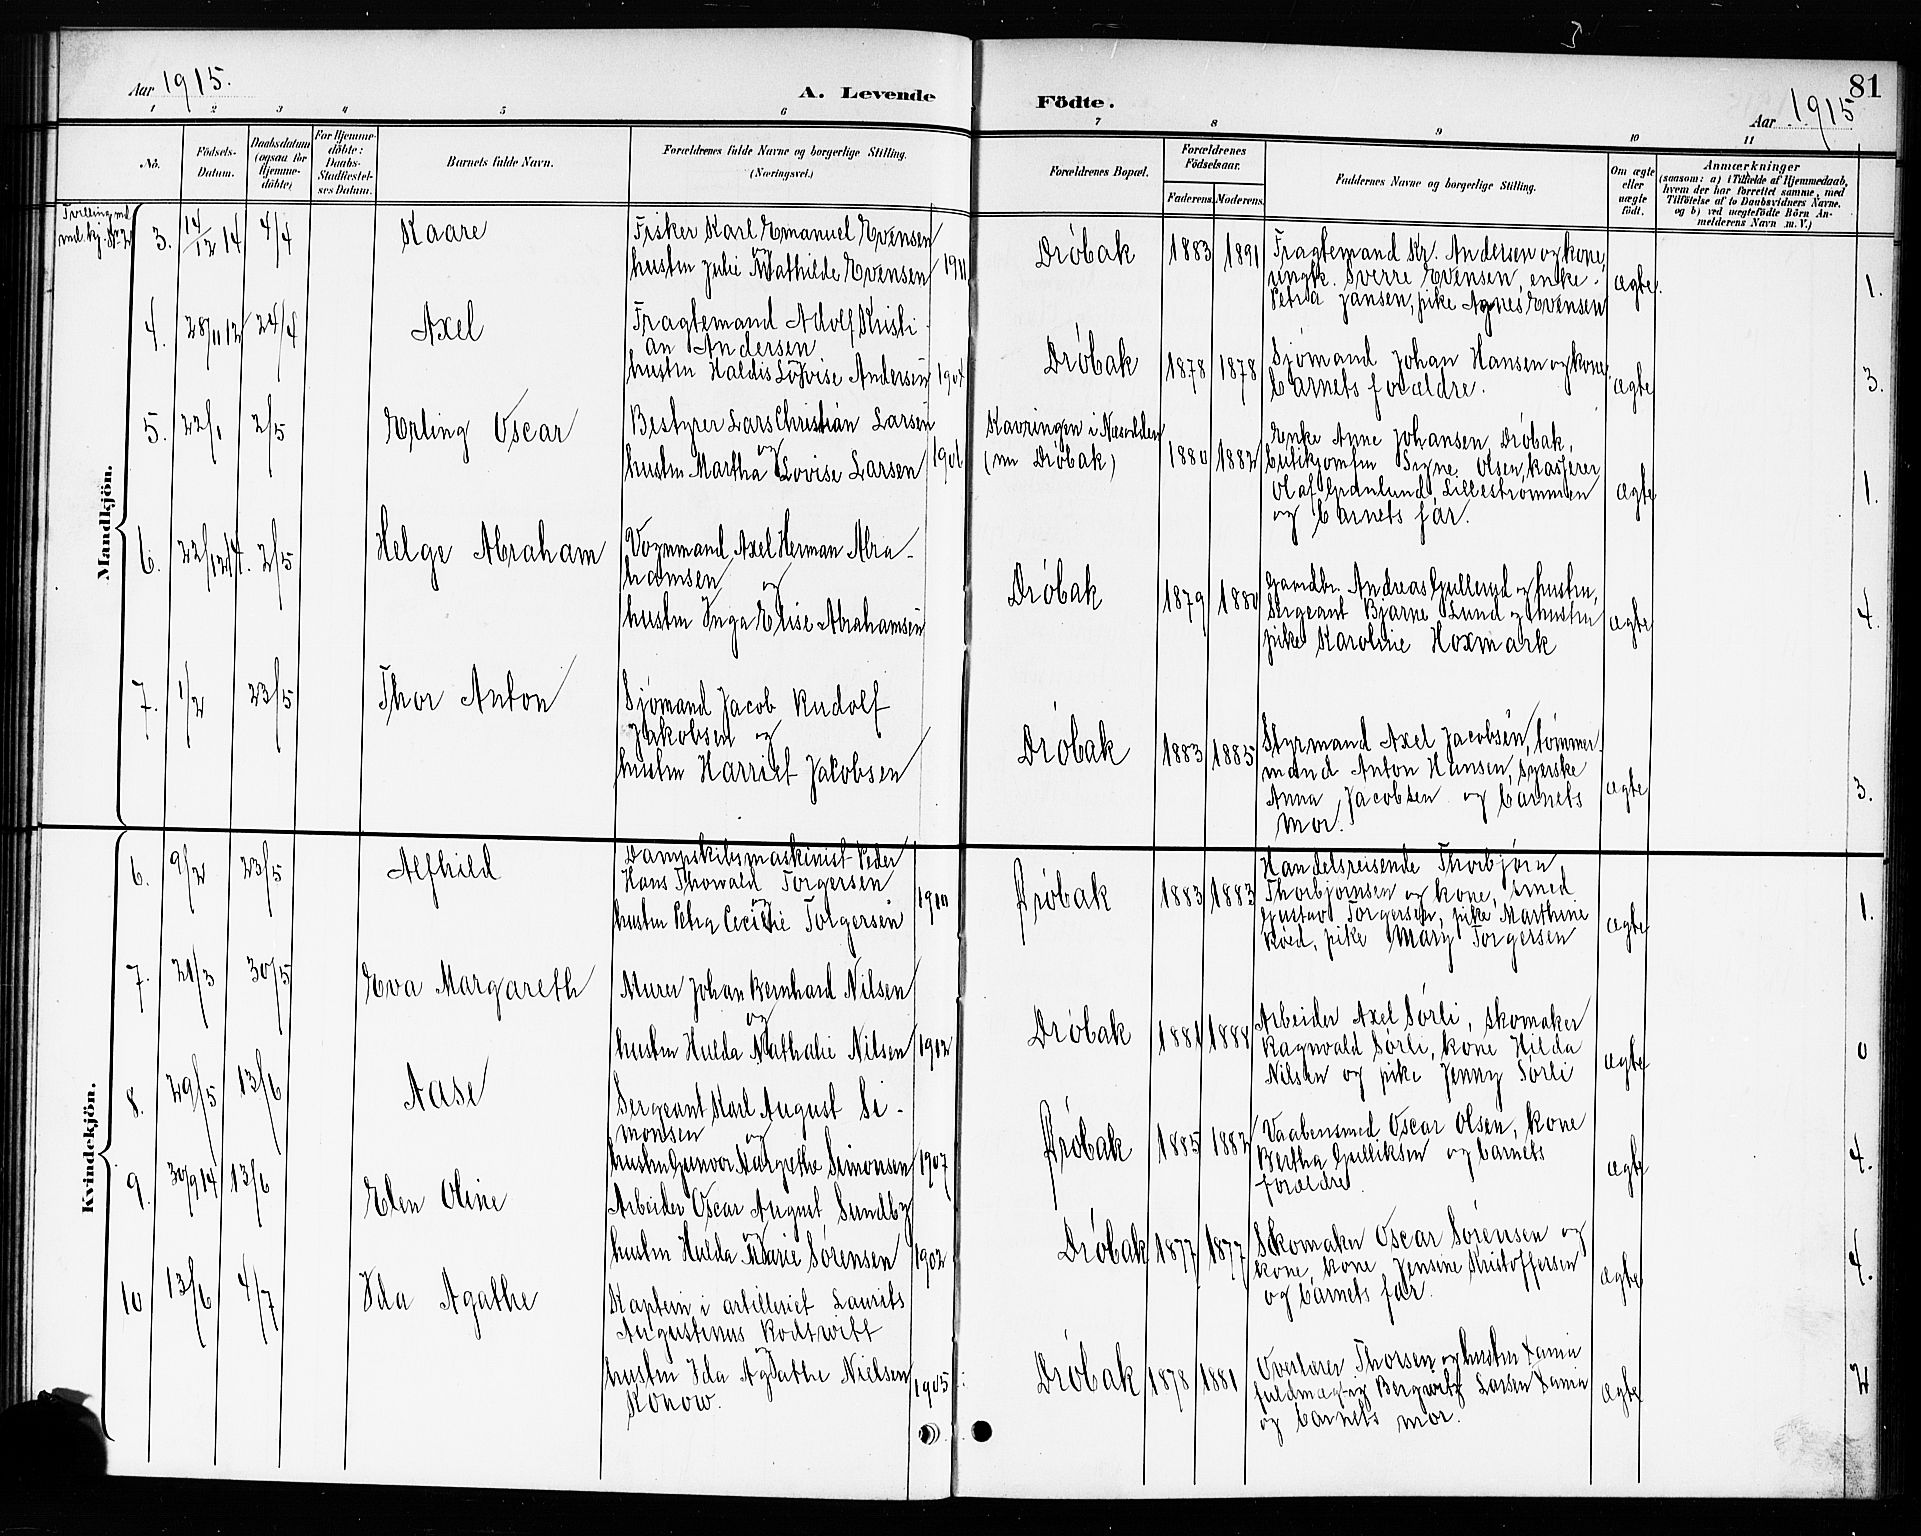 Aar 1915.
A. Levende
Födte.
Aar 1915
81
1 2 3 4 5 6 7 8 9 10 11
No.
Födsels-
Datum.
Daabsdatum
(ogsaa for
Hjemme-
döbte)
For Hjemme-
döbte:
Daabs-
Stadfæstel-
ses Datum.
Barnets fulde Navn.
Forældrenes fulde Navne og borgerlige Stilling.
(Næringsvei.)
Forældrenes Bopæl.
Forældrenes
Födselsaar.
Faderens.
Moderens.
Faddernes Navne og borgerlige Stilling.
Om ægte
eller
uægte
født.
Anmærkninger
(saasom: a) i Tilfælde af Hjemmedaab,
hvem der har forrettet samme, med
Tilföielse af to Daabsvidners Navne.
og b) ved uægtefödte Börn An-
melderens Navn m. V.)
Mandkjön.
Tvilling md.
3. 14/12 14 4/4 Kaare
Fisker Karl Emanuel Evensen
og
hustru Julie Mathilde Evensen 1911
Dröbak 1883 1891
Fragtemand Kr. Andersen og kone,
ungk. Sverre Evensen, enke
Petra Jansen, pike Agnes Evensen
ægte. 1.
4. 28/11 12 24/4 Axel
Fragtemand Adolf Kristi-
an Andersen
og
hustru Haldis Lovise Andersen 1904
Dröbak 1878 1878
Sjömand Johan Hansen og kone,
barnets forældre.
ægte 3.
5. 22/1 2/5 Erling Oscar
Bestyrer Lars Christian Larsen
og
hustru Martha Lovise Larsen 1906
Kavringen i Næsodden
(nu Dröbak) 1880 1882
Enke Anne Johansen, Dröbak,
butikjomfru Signe Olsen, kasserer
Olaf Grönlund, Lilleströmmen
og barnets far.
ægte 1.
6. 22/12 14. 2/5 Helge Abraham
Vognmand Axel Herman Abra-
hamsen og
hustru Inga Elise Abrahamsen
Dröbak 1879 1880
Gaardbr. Andreas Gullerud og hustru,
Sergeant Bjarne Lund og hustru
pike Karoline Hoxmark
ægte 4.
7. 1/2 23/5 Thor Anton
Sjömand Jacob Rudolf
Jakobsen og
hustru Harriet Jakobsen
Dröbak 1883 1885
Styrmand Axel Jacobsen, tömmer-
mand Anton Hansen, syerske
Anna Jacobsen og barnets
mor.
ægte 3.
Kvindekjön.
6. 9/2 23/5 Alfhild
Dampskibsmaskinist Peder
Hans Thorvald Torgersen
og
hustru Petra Cecilie Torgersen 1910
Dröbak 1883 1883
Handelsreisende Thorbjörn
Thorbjörnsen og kone, smed
Gustav Torgersen, pike Marthine
Röed, pike Mary Torgersen
ægte 1.
7. 21/3 30/5 Eva Margareth
Murer Johan Bernhard Nilsen
og
hustru Hulda Nathalie Nilsen 1912
Dröbak 1881 1888
Arbeider Axel Sörli, skomaker
Ragnvald Sörli, kone Hilda
Nilsen og pike Jenny Sörli
ægte 0
8. 29/5 13/6 Aase
Sergeant Karl August Si-
monsen og
hustru Gunvor Margrethe Simonsen 1907
Dröbak 1885 1882
Vaabensmed Oscar Olsen, kone
Bertha Gulliksen og barnets
forældre.
ægte 4.
9. 30/9 14 13/6 Elen Oline
Arbeider Oscar August Sundby
og
hustru Hulda Marie Sörensen 1902
Dröbak 1877 1877
Skomaker Oscar Sörensen og
kone, kone Jensine Kristoffersen
og barnets far.
ægte 4.
10 13/6 4/7 Ida Agathe
Kaptein i artilleriet Laurits
Augustinus Rodtwitt
og
hustru Ida Agathe Nielsen
Konow. 1905
Dröbak 1878 1881
Overlærer Thorsen og hustru
og Larsen
og barnets mor.
ægte 2